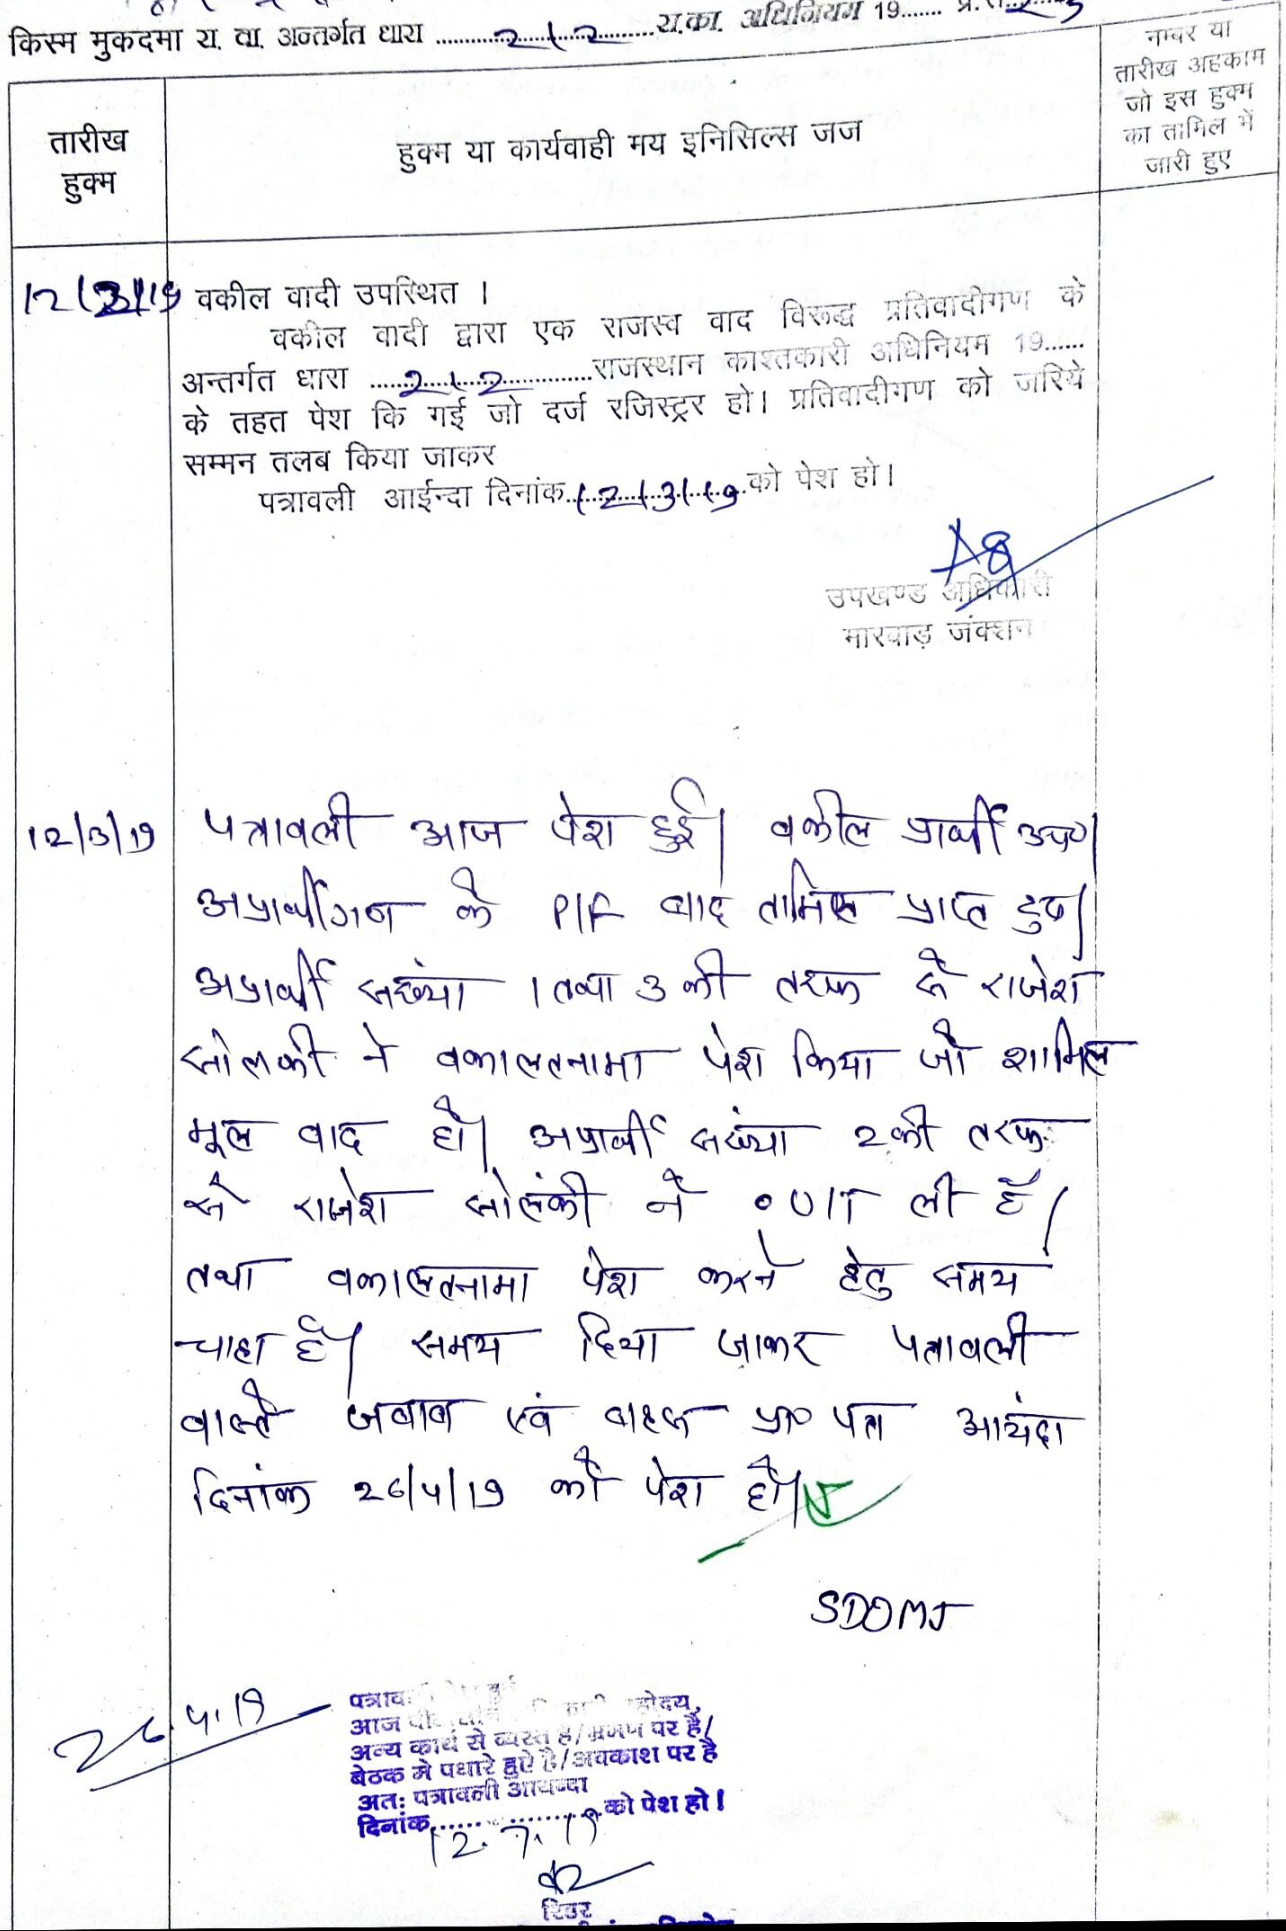 किस्म मुकदमा रा. वा. अन्तर्गत धारा ...........212...........रा.का. अधिनियम 19.......
तारीख
हुक्म
हुक्म या कार्यवाही मय इनिसिल्स जज
नम्बर या
तारीख अहकाम
जो इस हुक्म
का तामिल में
जारी हुए
वकील वादी उपस्थित ।
वकील वादी द्वारा एक राजस्व वाद विरूद्ध प्रतिवादीगण के
अन्तर्गत धारा ......212............राजस्थान काश्तकारी अधिनियम 19......
के तहत पेश कि गई जो दर्ज रजिस्ट्रर हो। प्रतिवादीगण को जरिये
सम्मन तलब किया जाकर
पत्रावली आईन्दा दिनांक..12/3/19..को पेश हो।
उपखण्ड अधिकारी
मारवाड़ जंक्शन
12/3/19
पत्रावली आज पेश हुई। वकील प्रार्थी उप०।
अप्रार्थीगण के P/F बाद तामिल प्राप्त हुए।
अप्रार्थी संख्या 1 तथा 3 की तरफ से राजेश
सोलकी ने वकालतनामा पेश किया जो शामिल
मूल वाद हो। अप्रार्थी संख्या 2 की तरफ
से राजेश सोलंकी ने U/T ली है।
तथा वकालतनामा पेश करने हेतु समय
चाहा है। समय दिया जाकर पत्रावली
वास्ते जवाब एवं बहस प्रा० पत्र आयंदा
दिनांक 26/4/19 को पेश हो।
SDOMJ
26.4.19
आज
अन्य कार्य से व्यस्त है/भ्रमण पर है/
बेठक मे पधारे हुऐ है/अवकाश पर है
अतः पत्रावली आयन्दा
दिनांक...............को पेश हो।
12.7.19
रिडर